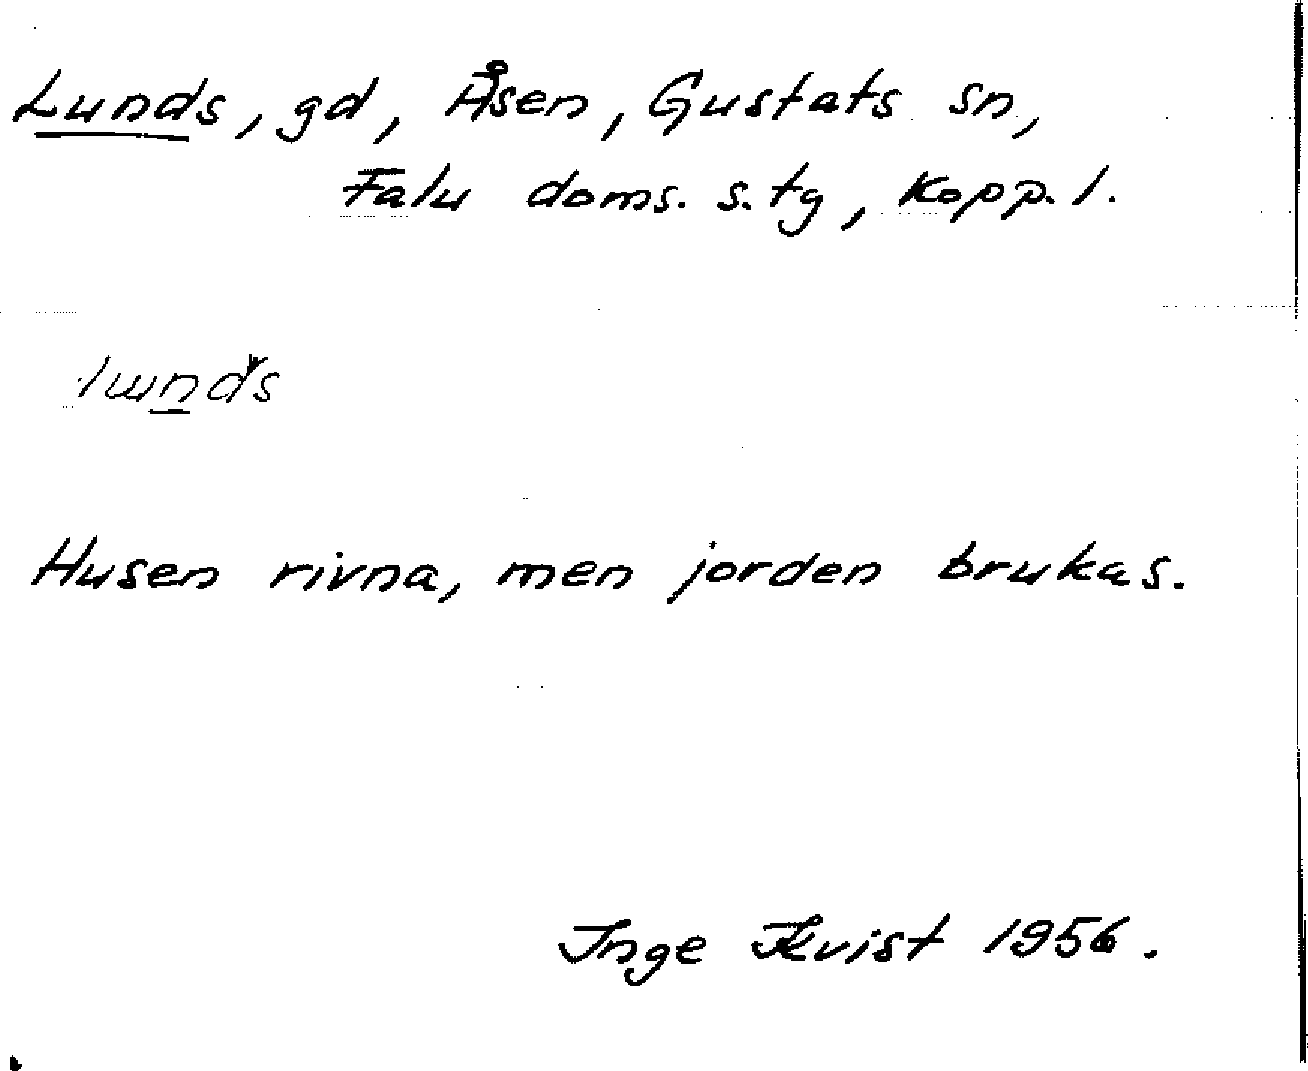 Lunds, gd, Åsen, Gustafs sn,
Falu doms. s. tg, Kopp. l.
lunds
Husen rivna, men jorden brukas.
Inge Kvist 1956.